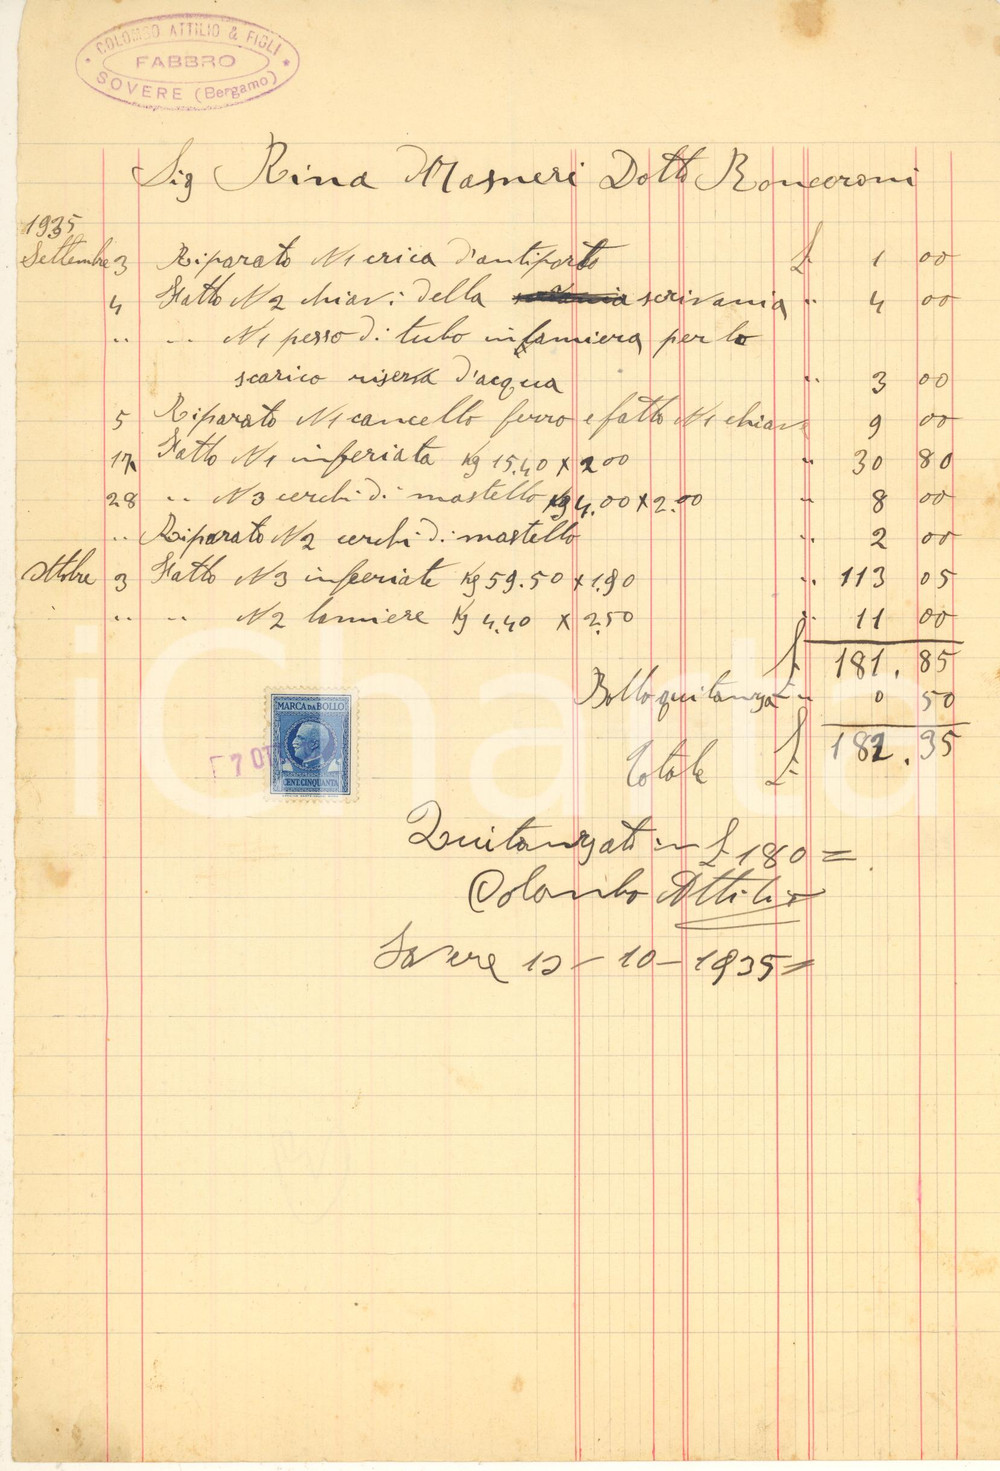 COLOMBO ATTILIO & FIGLI
FABBRO
SOVERE (Bergamo)
Sig Rina Masneri Dotto Ronceroni
1935
Settembre 3 Riparato N1 crica d'antiporto £ 1 00
4 Fatto N2 chiavi della scrivania " 4 00
" " N1 pesso di tubo in lamiera per lo
scarico riserva d'acqua " 3 00
5 Riparato N1 cancello ferro e fatto N1 chiavi 9 00
17 Fatto N1 inferiata Kg 15.40 x 2 00 " 30 80
28 " N3 cerchi di mastello Kg 4.00 x 2.00 " 8 00
" Riparato N2 cerchi di mastello " 2 00
Ottobre 3 Fatto N3 inferiate Kg 59.50 x 1.90 " 113 05
" " N2 lamiere Kg 4.40 x 2.50 " 11 00
£ 181.85
Bollo quitanza £ " 0 50
Totale £ 182.35
MARCA DA BOLLO
CENT. CINQUANTA
7 OTT
Quitanzato in £ 180 =
Colombo Attilio
Sovere 12 - 10 - 1935 =
iCharta